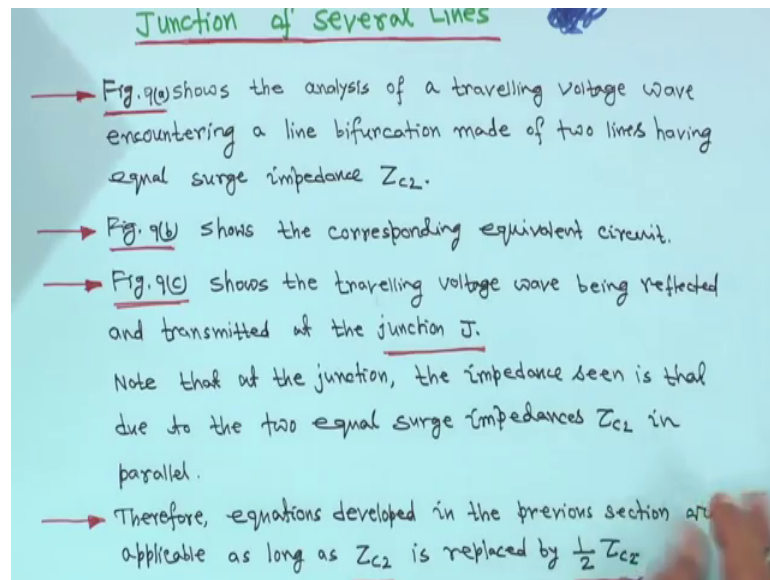 Junction of Several Lines
Fig. 9(a) shows the analysis of a travelling voltage wave
encountering a line bifurcation made of two lines having
equal surge impedance Zc2.
Fig. 9(b) shows the corresponding equivalent circuit.
Fig. 9(c) shows the travelling voltage wave being reflected
and transmitted at the junction J.
Note that at the junction, the impedance seen is that
due to the two equal surge impedances Zc2 in
parallel.
Therefore, equations developed in the previous section are
applicable as long as Zc2 is replaced by 1/2 Zc2